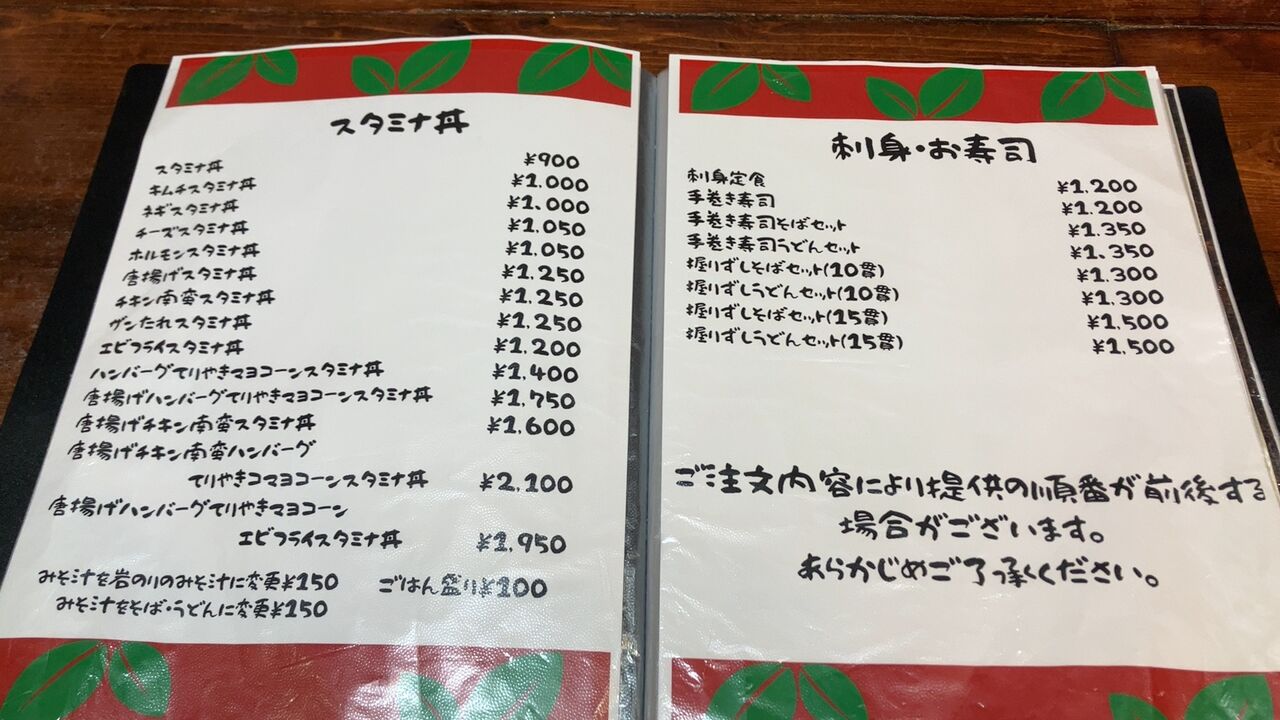 スタミナ丼
スタミナ丼 ¥900
キムチスタミナ丼 ¥1.000
ネギスタミナ丼 ¥1.000
チーズスタミナ丼 ¥1.050
ホルモンスタミナ丼 ¥1.050
唐揚げスタミナ丼 ¥1.250
チキン南蛮スタミナ丼 ¥1.250
ザンたれスタミナ丼 ¥1.250
エビフライスタミナ丼 ¥1.200
ハンバーグてりやきマヨコーンスタミナ丼 ¥1.400
唐揚げハンバーグてりやきマヨコーンスタミナ丼 ¥1.750
唐揚げチキン南蛮スタミナ丼 ¥1.600
唐揚げチキン南蛮ハンバーグ
てりやきコマヨコーンスタミナ丼 ¥2.100
唐揚げハンバーグてりやきマヨコーン
エビフライスタミナ丼 ¥1.950
みそ汁を岩のりのみそ汁に変更¥150 ごはん盛り¥100
みそ汁をそば・うどんに変更¥150
刺身・お寿司
刺身定食 ¥1.200
手巻き寿司 ¥1.200
手巻き寿司そばセット ¥1.350
手巻き寿司うどんセット ¥1.350
握りずしそばセット(10貫) ¥1.300
握りずしうどんセット(10貫) ¥1.300
握りずしそばセット(15貫) ¥1.500
握りずしうどんセット(15貫) ¥1.500
ご注文内容により提供の順番が前後する
場合がございます。
あらかじめご了承ください。